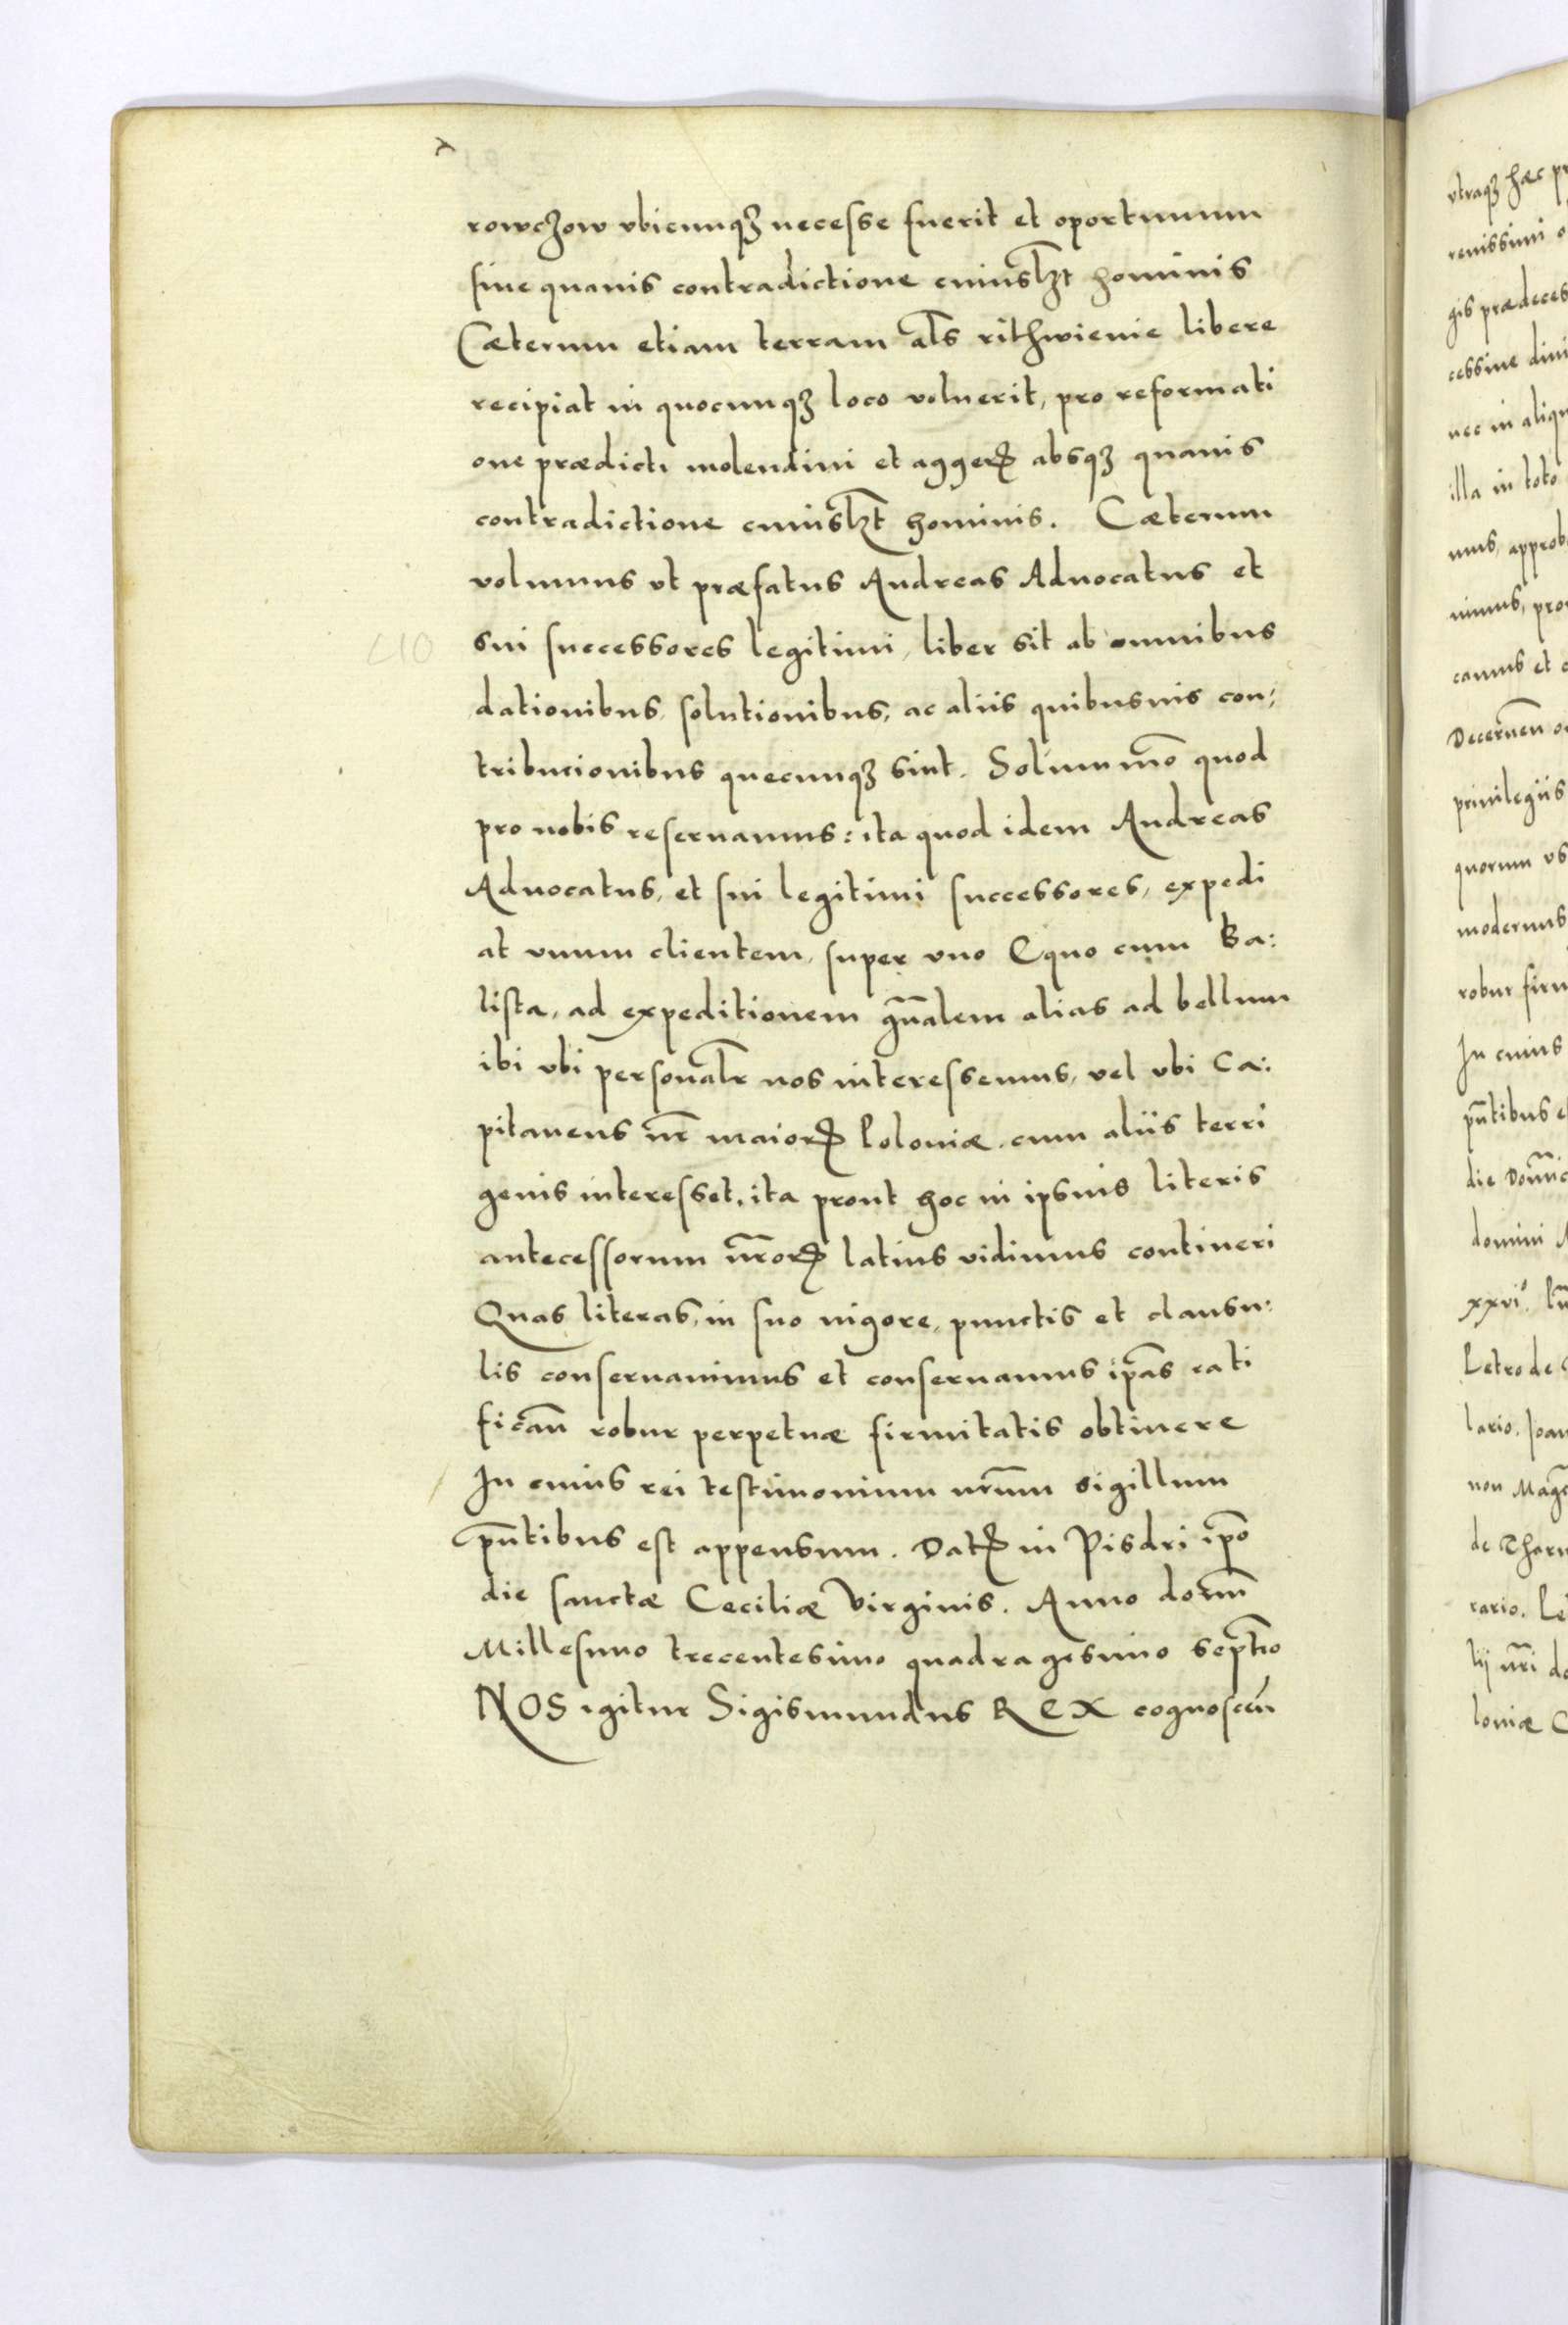 rowczow vbicunqꝫ necesse fuerit et oportunum
sine quauis contradictione cuiuslꝫt hominis
Cæterum etiam terram al̄s rithwienie libere
recipiat in quocunqꝫ loco voluerit, pro reformati
one prædicti molendini et aggerꝝ absqꝫ quauis
contradictione cuiuslꝫt hominis. Cæterum
volumus vt præfatus Andreas Aduocatus et
sui successores legitimi, liber sit ab omnibus
dationibus, solutionibus, ac aliis quibusuis con:
tribucionibus quecunqꝫ sint. Solummo͞ quod
pro nobis reseruamus: ita quod idem Andreas
Aduocatus, et sui legitimi successores, expedi
at vnum clientem, super vno Equo cum Ba:
lista, ad expeditionem gn̄alem alias ad bellum
ibi vbi personal̄r nos interessemus, vel vbi Ca:
pitaneus nr̄ maiorꝝ Poloniæ. cum aliis terri
genis interesset, ita prout hoc in ipsuis literis
antecessorum nr̄orꝝ latius vidimus contineri
Quas literas, in suo uigore, punctis et clausu:
lis conseruauimus et conseruamus ip̄as rati
fican̄ robur perpetuæ firmitatis obtinere
In cuius rei testimonium nr̄um sigillum
pn̄tibus est appensum. Datꝝ in Pisdri ip̄o
die sanctæ Ceciliæ Virginis. Anno domī
Millesimo trecentesimo quadragesimo septīo
NOS igitur Sigismundus REX cognoscen̄
vtraqꝫ hæc
renissimi
gis prædeces
cessiue diui
nec in aliqu
illa in toto
mus, approb
nimus, pro
camus et
Decernen̄
priuilegiis
quorum vs
modernus
robur firm
In cuius
pn̄tibus
die Domīc
domini
xxviº.
Petro de
lario. Joan
non Mag
de Thar
rario. Pe
lij nr̄i do
loniæ C